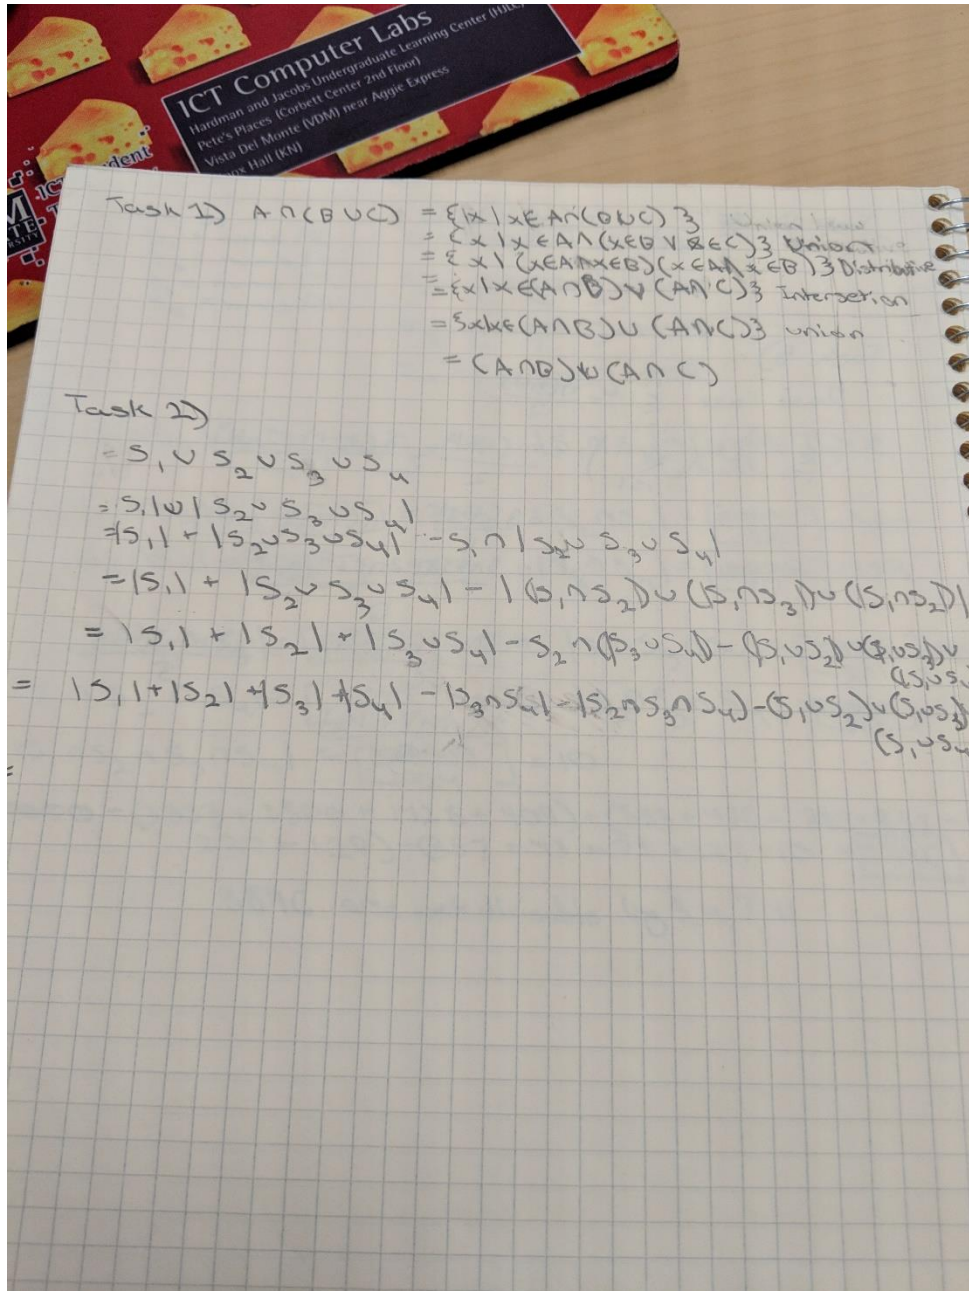 ICT Computer Labs
Hardman and Jacobs Undergraduate Learning Center (HJLC)
Pete's Places (Corbett Center 2nd Floor)
Vista Del Monte (VDM) near Aggie Express
Hall (KN)
dent
ICT
M
TE
RSITY
Task 1) A∩(B∪C) = {x|x∈A∩(B∪C)}
= {x|x∈A∧(x∈B∨x∈C)} Union
= {x|(x∈A∧x∈B)(x∈A∧x∈B)} Distributive
= {x|x∈(A∩B)∨(A∩C)} Intersetion
= {x|x∈(A∩B)∪(A∩C)} union
= (A∩B)∪(A∩C)
Task 2)
= S₁∪S₂∪S₃∪S₄
= S₁|∪|S₂∪S₃∪S₄|
=|S₁|+|S₂∪S₃∪S₄|-S₁∩|S₂∪S₃∪S₄|
=|S₁|+|S₂∪S₃∪S₄|-|(S₁∩S₂)∪(|S₁∩S₃)∪(|S₁∩S₂)|
=|S₁|+|S₂|+|S₃∪S₄|-S₂∩(|S₃∪S₄|)-(|S₁∪S₂)∪(S₁∪S₃)∪
(|S₁∪S
= |S₁|+|S₂|+|S₃|+|S₄|-|S₃∩S₄|-|S₂∩S₃∩S₄)-(S₁∪S₂)∪(S₁∪S₃)
(S₁∪S₄
=